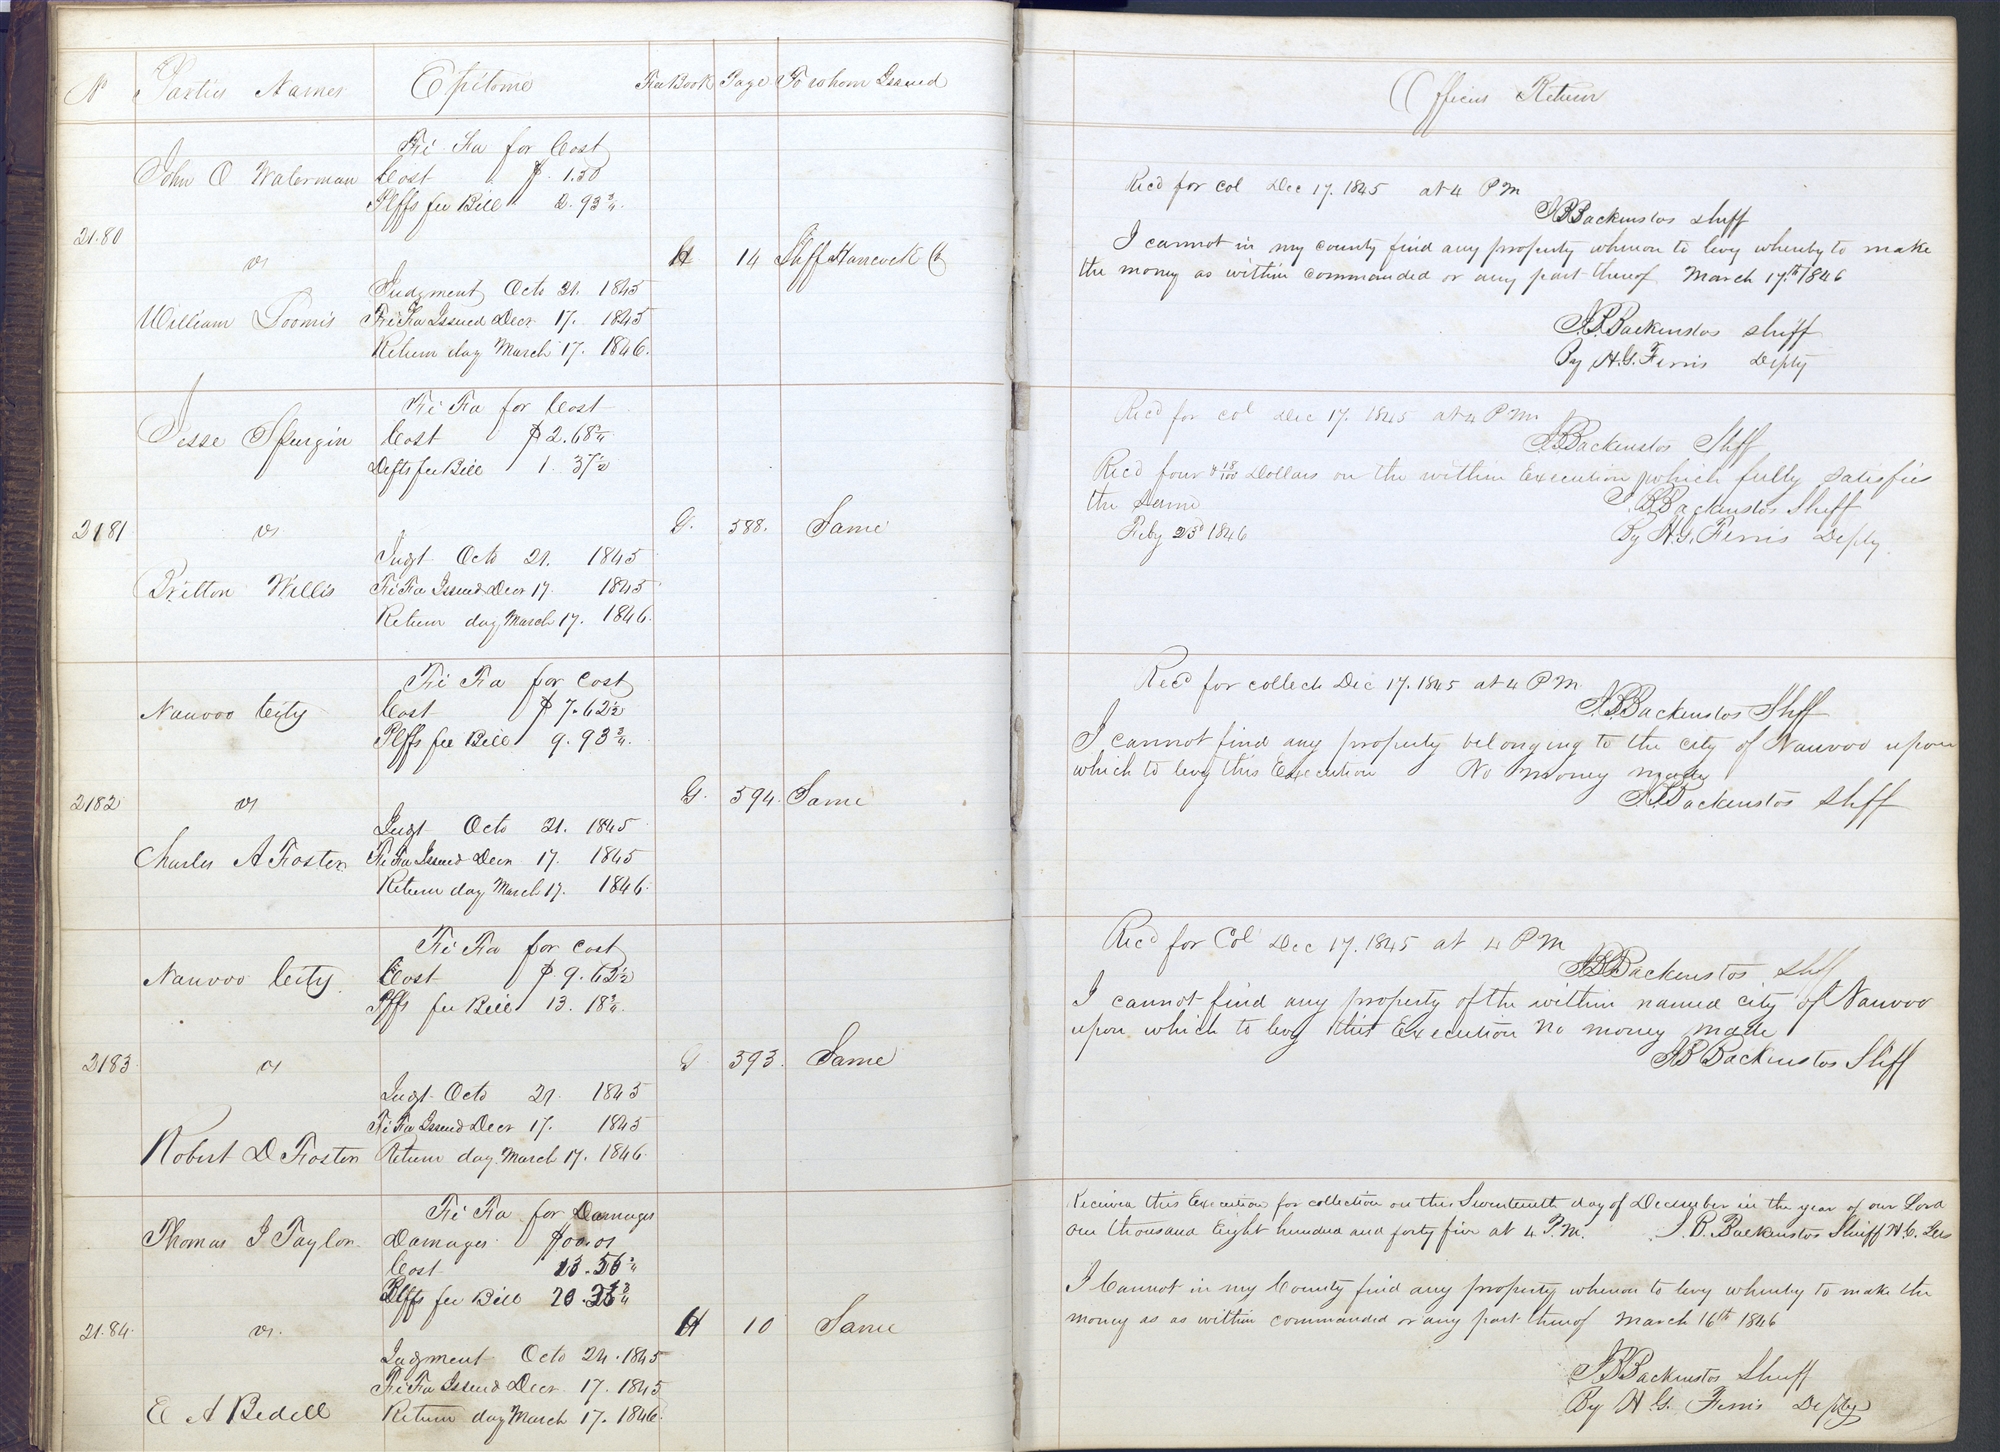 No Parties Names Epitome Fee Book Page To whom Issued
Fi Fa for Cost
John O Waterman Cost $ 1.50
Plffs fee Bill 2.93 3/4
2180 vs H 14 Shff Hancock Co
Judgment Octo 21. 1845
William Loomis Fi Fa Issued Decr 17. 1845
Return day March 17. 1846.
Fi Fa for Cost
Jesse Spurgin Cost $ 2.68 3/4
Defts fee Bill 1.37 1/2
2181 vs G. 588. Same
Jugt Octo 21. 1845
Britton Willis Fi Fa Issued Decr 17. 1845
Return day March 17. 1846.
Fi Fa for Cost
Nauvoo City Cost $ 7.62 1/2
Plffs fee Bill 9.93 3/4.
2182 vs G. 594. Same
Jugt Octo 21. 1845
Charles A Foster Fi Fa Issued Decr 17. 1845
Return day March 17. 1846.
Fi Fa for Cost
Nauvoo City. Cost $ 9.62 1/2
Plffs fee Bill 13.18 3/4
2183 vs G 593. Same
Jugt Octo 21. 1845
Fi Fa Issued Decr 17. 1845
Robert D Foster Return day March 17. 1846.
Fi Fa for Damages
Thomas J Taylor. Damages
Cost
Plffs fee Bill
2184. vs. H 10 Same
Judgment Octo 24. 1845
Fi Fa Issued Decr. 17. 1845
E A Bedell Return day March 17. 1846.
Officers Return
Recd for col Dec 17. 1845 at 4 P M
J B Backenstos shff
I cannot in my county find any property whereon to levy whereby to make
the money as within commanded or any part thereof March 17th 1846
J. B. Backenstos shff
By H. G. Ferris Depty
Recd for col Dec 17. 1845 at 4 P M.
J B Backenstos Shff
Recd four & 18/100 Dollars on the within Execution which fully satisfies
the same J. B Backenstos Shff
Feby 23d 1846 By H. G. Ferris Depty.
Recd for collech Dec 17. 1845 at 4 P M
J. B Backenstos Shff
I cannot find any property belonging to the city of Nauvoo upon
which to levy this Execution No money made
J. B Backenstos shff
Recd for Col Dec 17. 1845 at 4 P M
J B Backenstos shff
I cannot find any property of the within named city of Nauvoo
upon which to levy this Execution No money made
J B Backenstos Shff
Received this Execution for collection on this Seventeenth day of December in the year of our Lord
one thousand Eight hundred and forty five at 4 P. M. J. B. Backenstos Sheriff H. C. Ills
I Cannot in my County find any property whereon to levy whereby to make the
money as as within commanded or any part thereof March 16th 1846
J B Backenstos Sheriff
By H. G. Ferris Depty